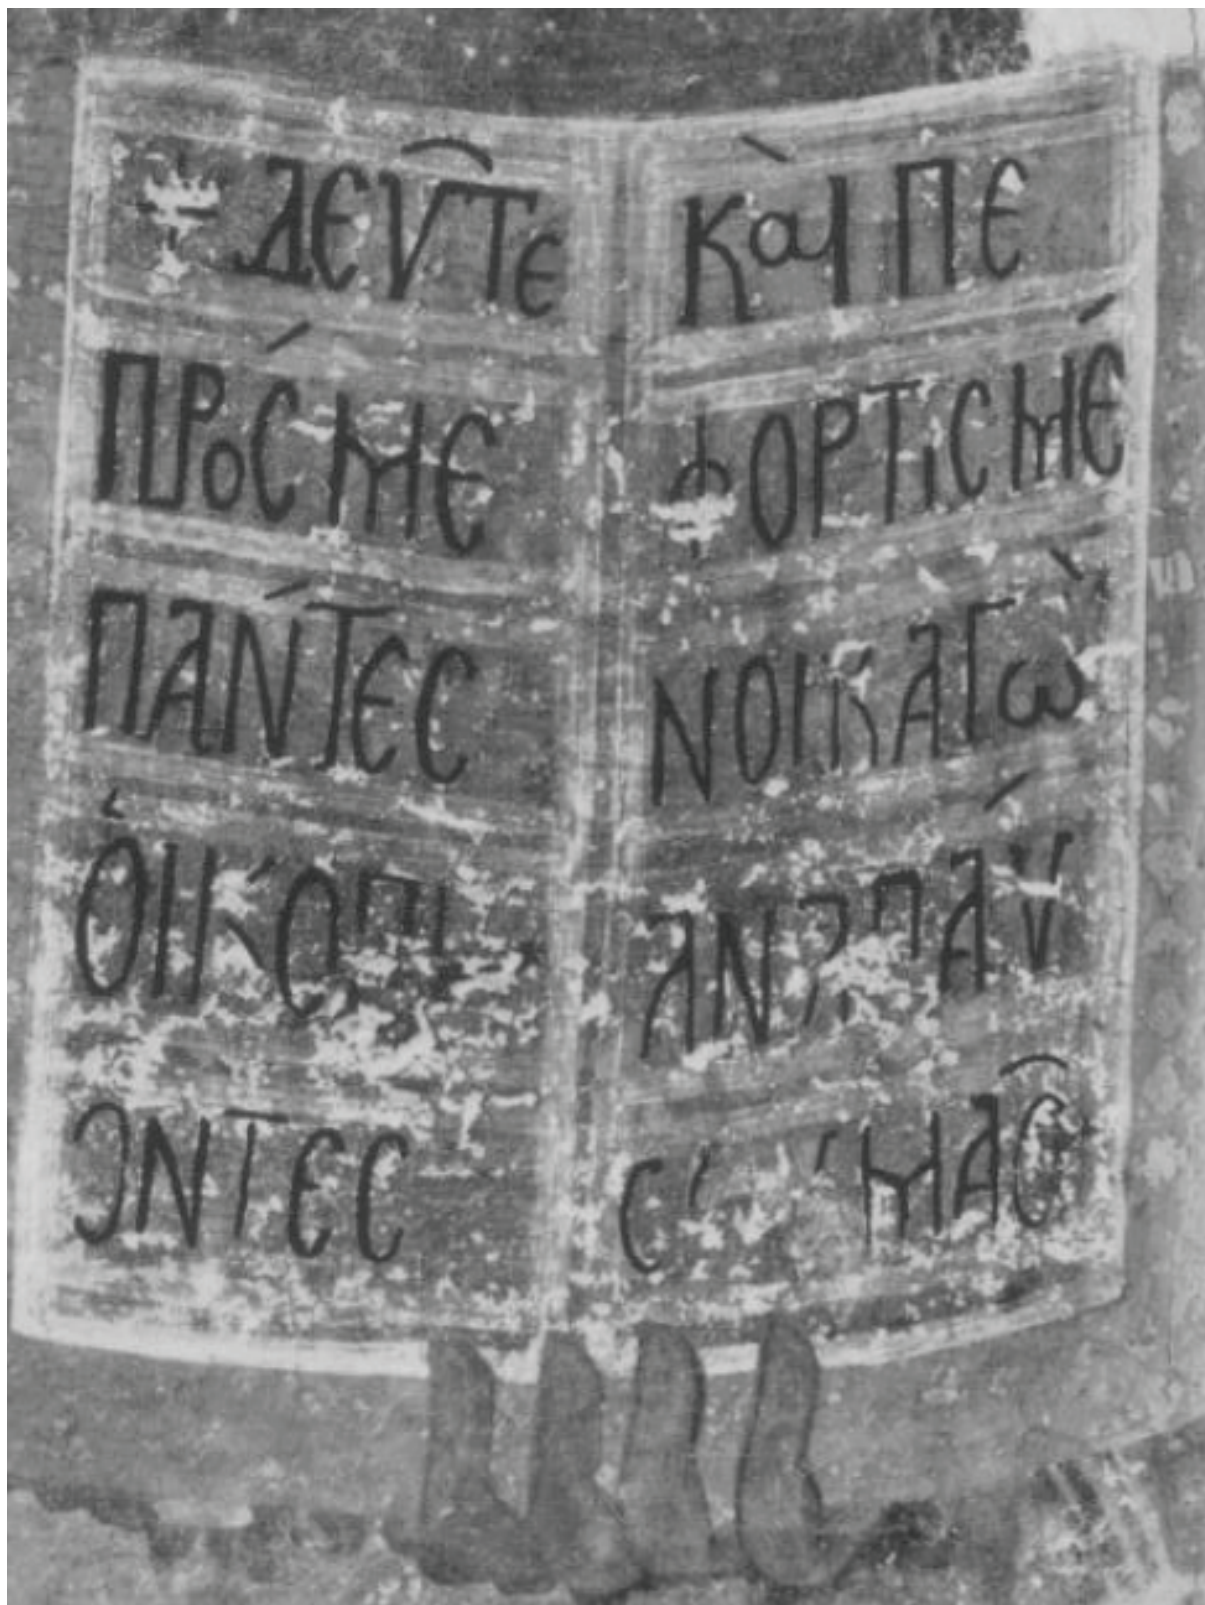 ΔΕΥ͂ΤΕ
ΠΡΌCΜΕ
ΠΆΝΤΕC
ὉΙΚΟΠΙ
ΟΝΤΕC
ΚΑῚΠΕ
ΦΟΡΤΙCΜΈ
ΝΟΙΚΑΓῺ
ΑΝΑΠΆΥ
ΜΑC͂